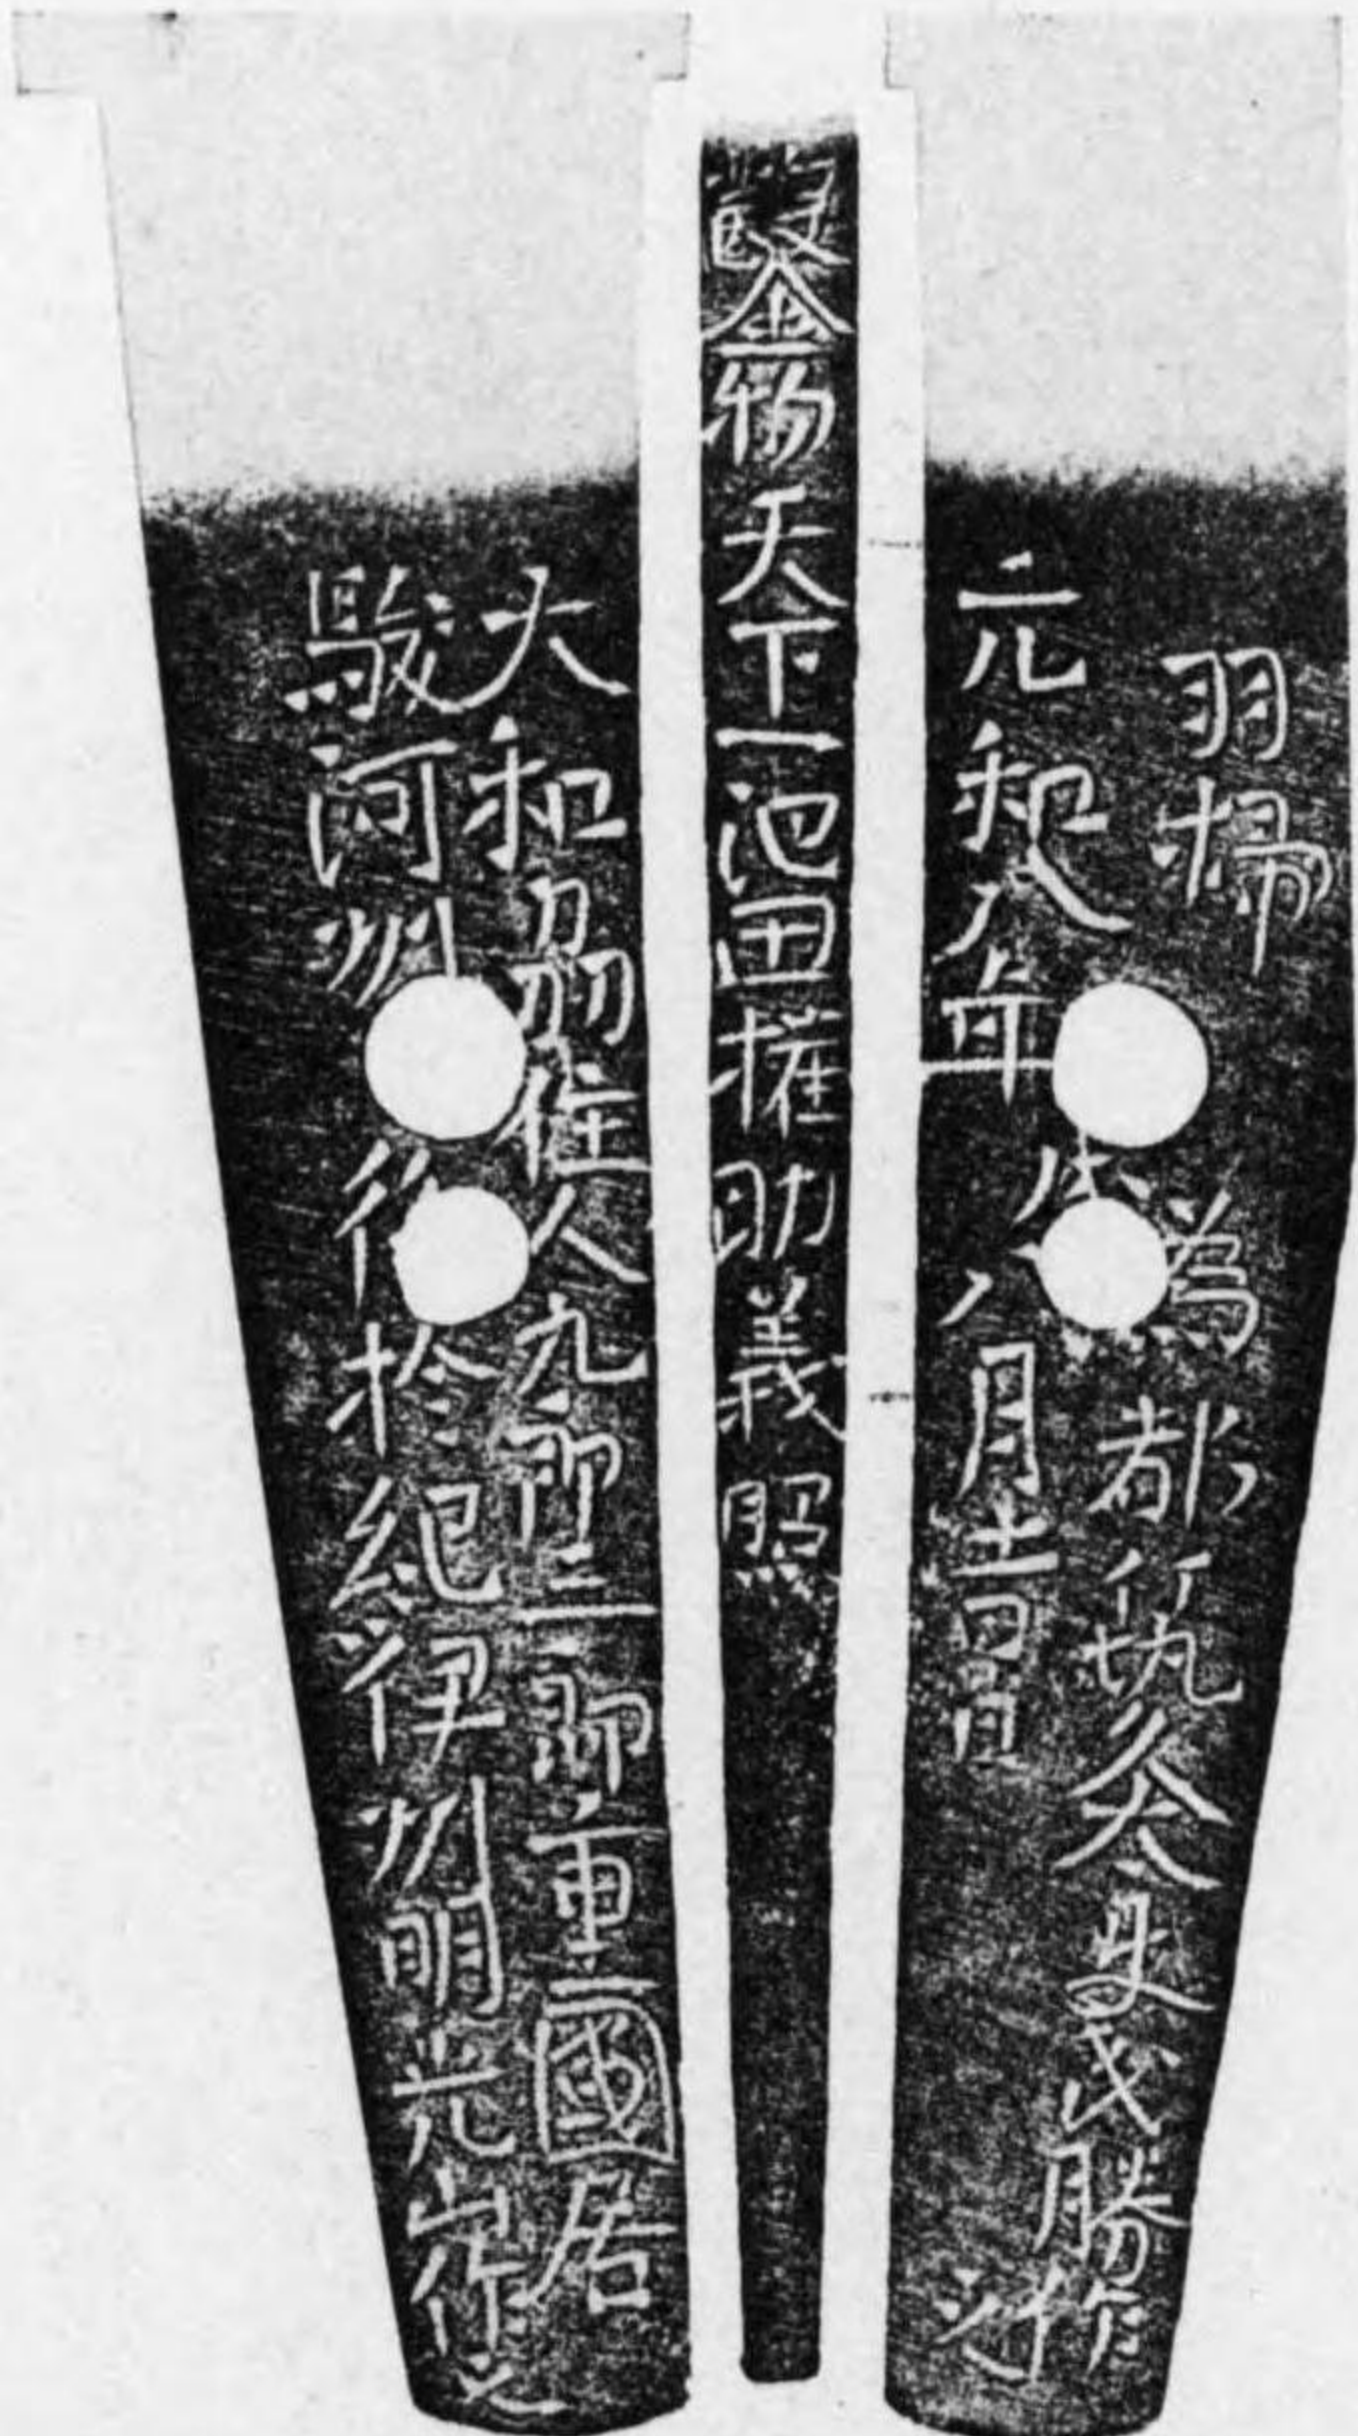 羽掃
為都筑久太夫氏勝作之
元和八年八月吉日
鑿物天下一池田権助義照
大和刕住人九郎三郎重國居
駿河州後於紀伊州明光山作之